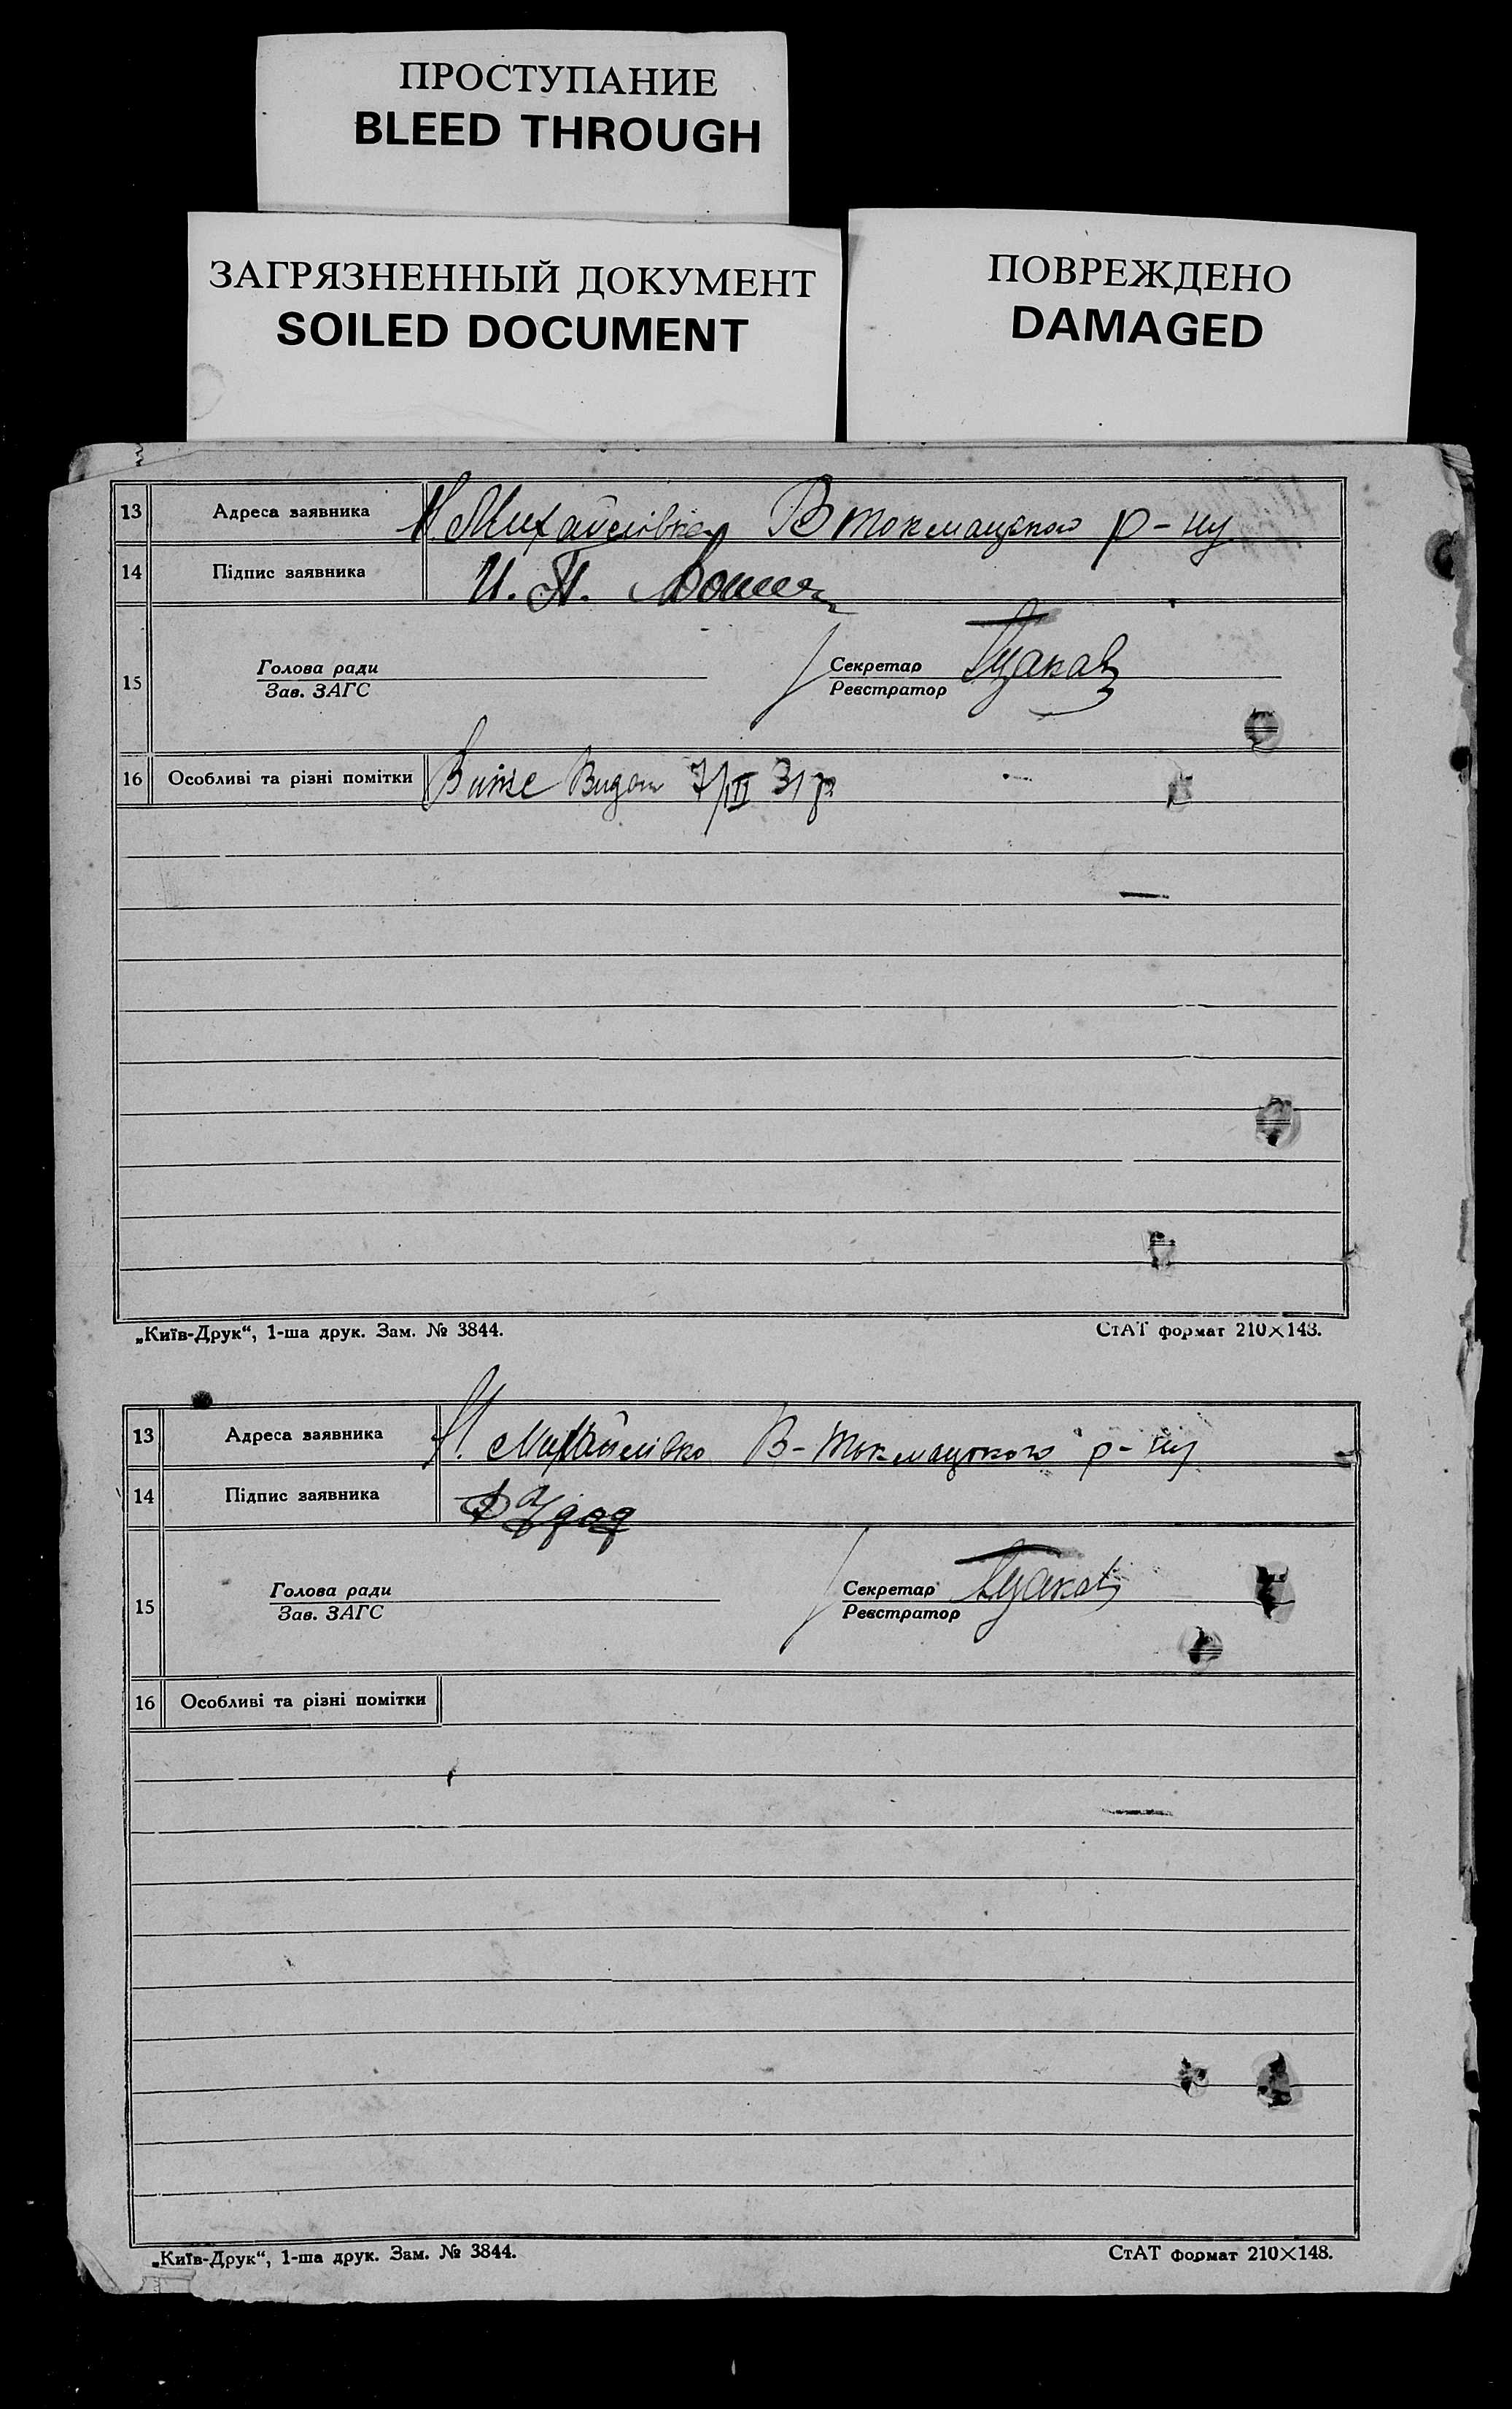 ПРОСТУПАНИЕ
BLEED THROUGH
ЗАГРЯЗНЕННЫЙ ДОКУМЕНТ
SOILED DOCUMENT
ПОВРЕЖДЕНО
DAMAGED
13 Адреса заявника Н. Михайлівка В токмацького р-ну
14 Підпис заявника И. П.
15 Голова ради
Зав. ЗАГС
Секретар
Реєстратор
16 Особливі та різні помітки Видан 7/III 31 р
„Київ-Друк“, 1-ша друк. Зам. № 3844. СтАТ формат 210×148.
13 Адреса заявника Н. Михайлівка В-токмацького р-ну
14 Підпис заявника Удод
15 Голова ради
Зав. ЗАГС
Секретар
Реєстратор
16 Особливі та різні помітки
„Київ-Друк“, 1-ша друк. Зам. № 3844. СтАТ формат 210×148.